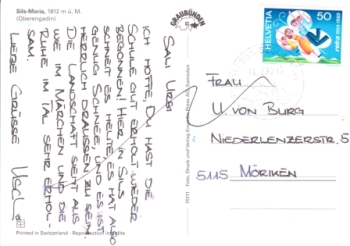 Sils-Maria, 1812 m ü. M.
(Oberengadin)
GRAUBÜNDEN
SALI URSI
ICH HOFFE, DU HAST DIE
SCHULE GUT ERHOLT WIEDER
BEGONNEN! HIER IN SILS
SCHNEIT ES HEUTE, ES HAT ALSO
GENUG SCHNEE, UND ES IST
HERRLICH DRAUSSEN ZU SEIN.
DIE LANDSCHAFT SIEHT AUS
WIE IM MÄRCHEN UND DIE
RUHE IM TAL SEHR ERHOL-
SAM.
LIEBE GRÜSSE
Printed in Switzerland - Reproduction interdite
Foto, Druck und Verlag
HELVETIA
50
FRAU
U. VON BURG
NIEDERLENZERSTR. 5
5115 MÖRIKEN